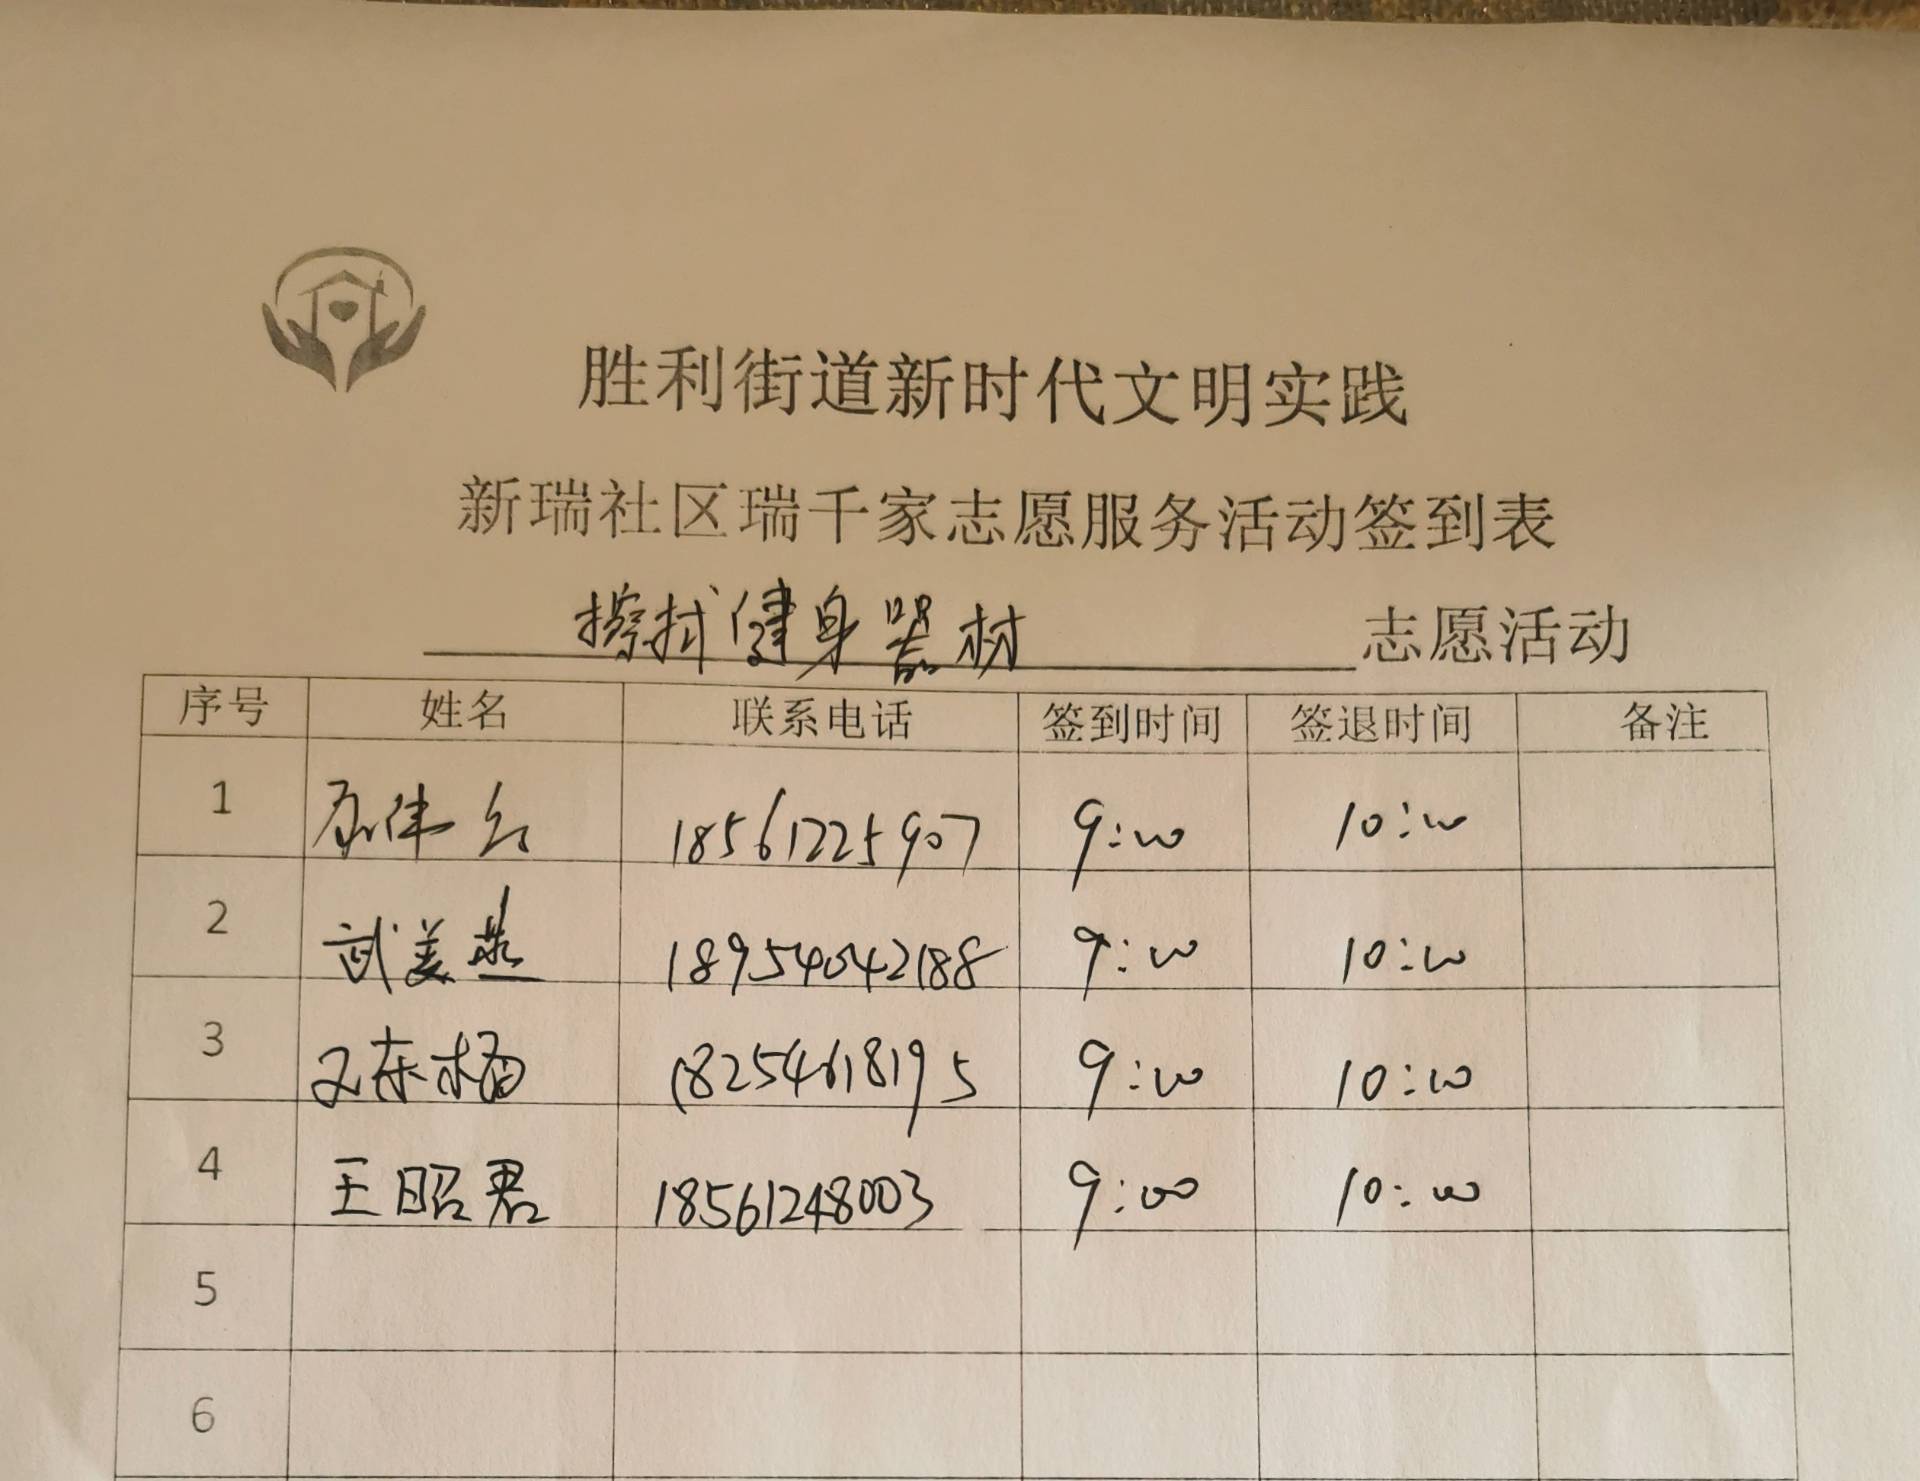 胜利街道新时代文明实践
新瑞社区瑞千家志愿服务活动签到表
擦拭健身器材 志愿活动
序号 姓名 联系电话 签到时间 签退时间 备注
1 18561225907 9:00 10:00
2 武美燕 18954042188 9:00 10:00
3 18254618195 9:00 10:00
4 王昭君 18561248003 9:00 10:00
5
6